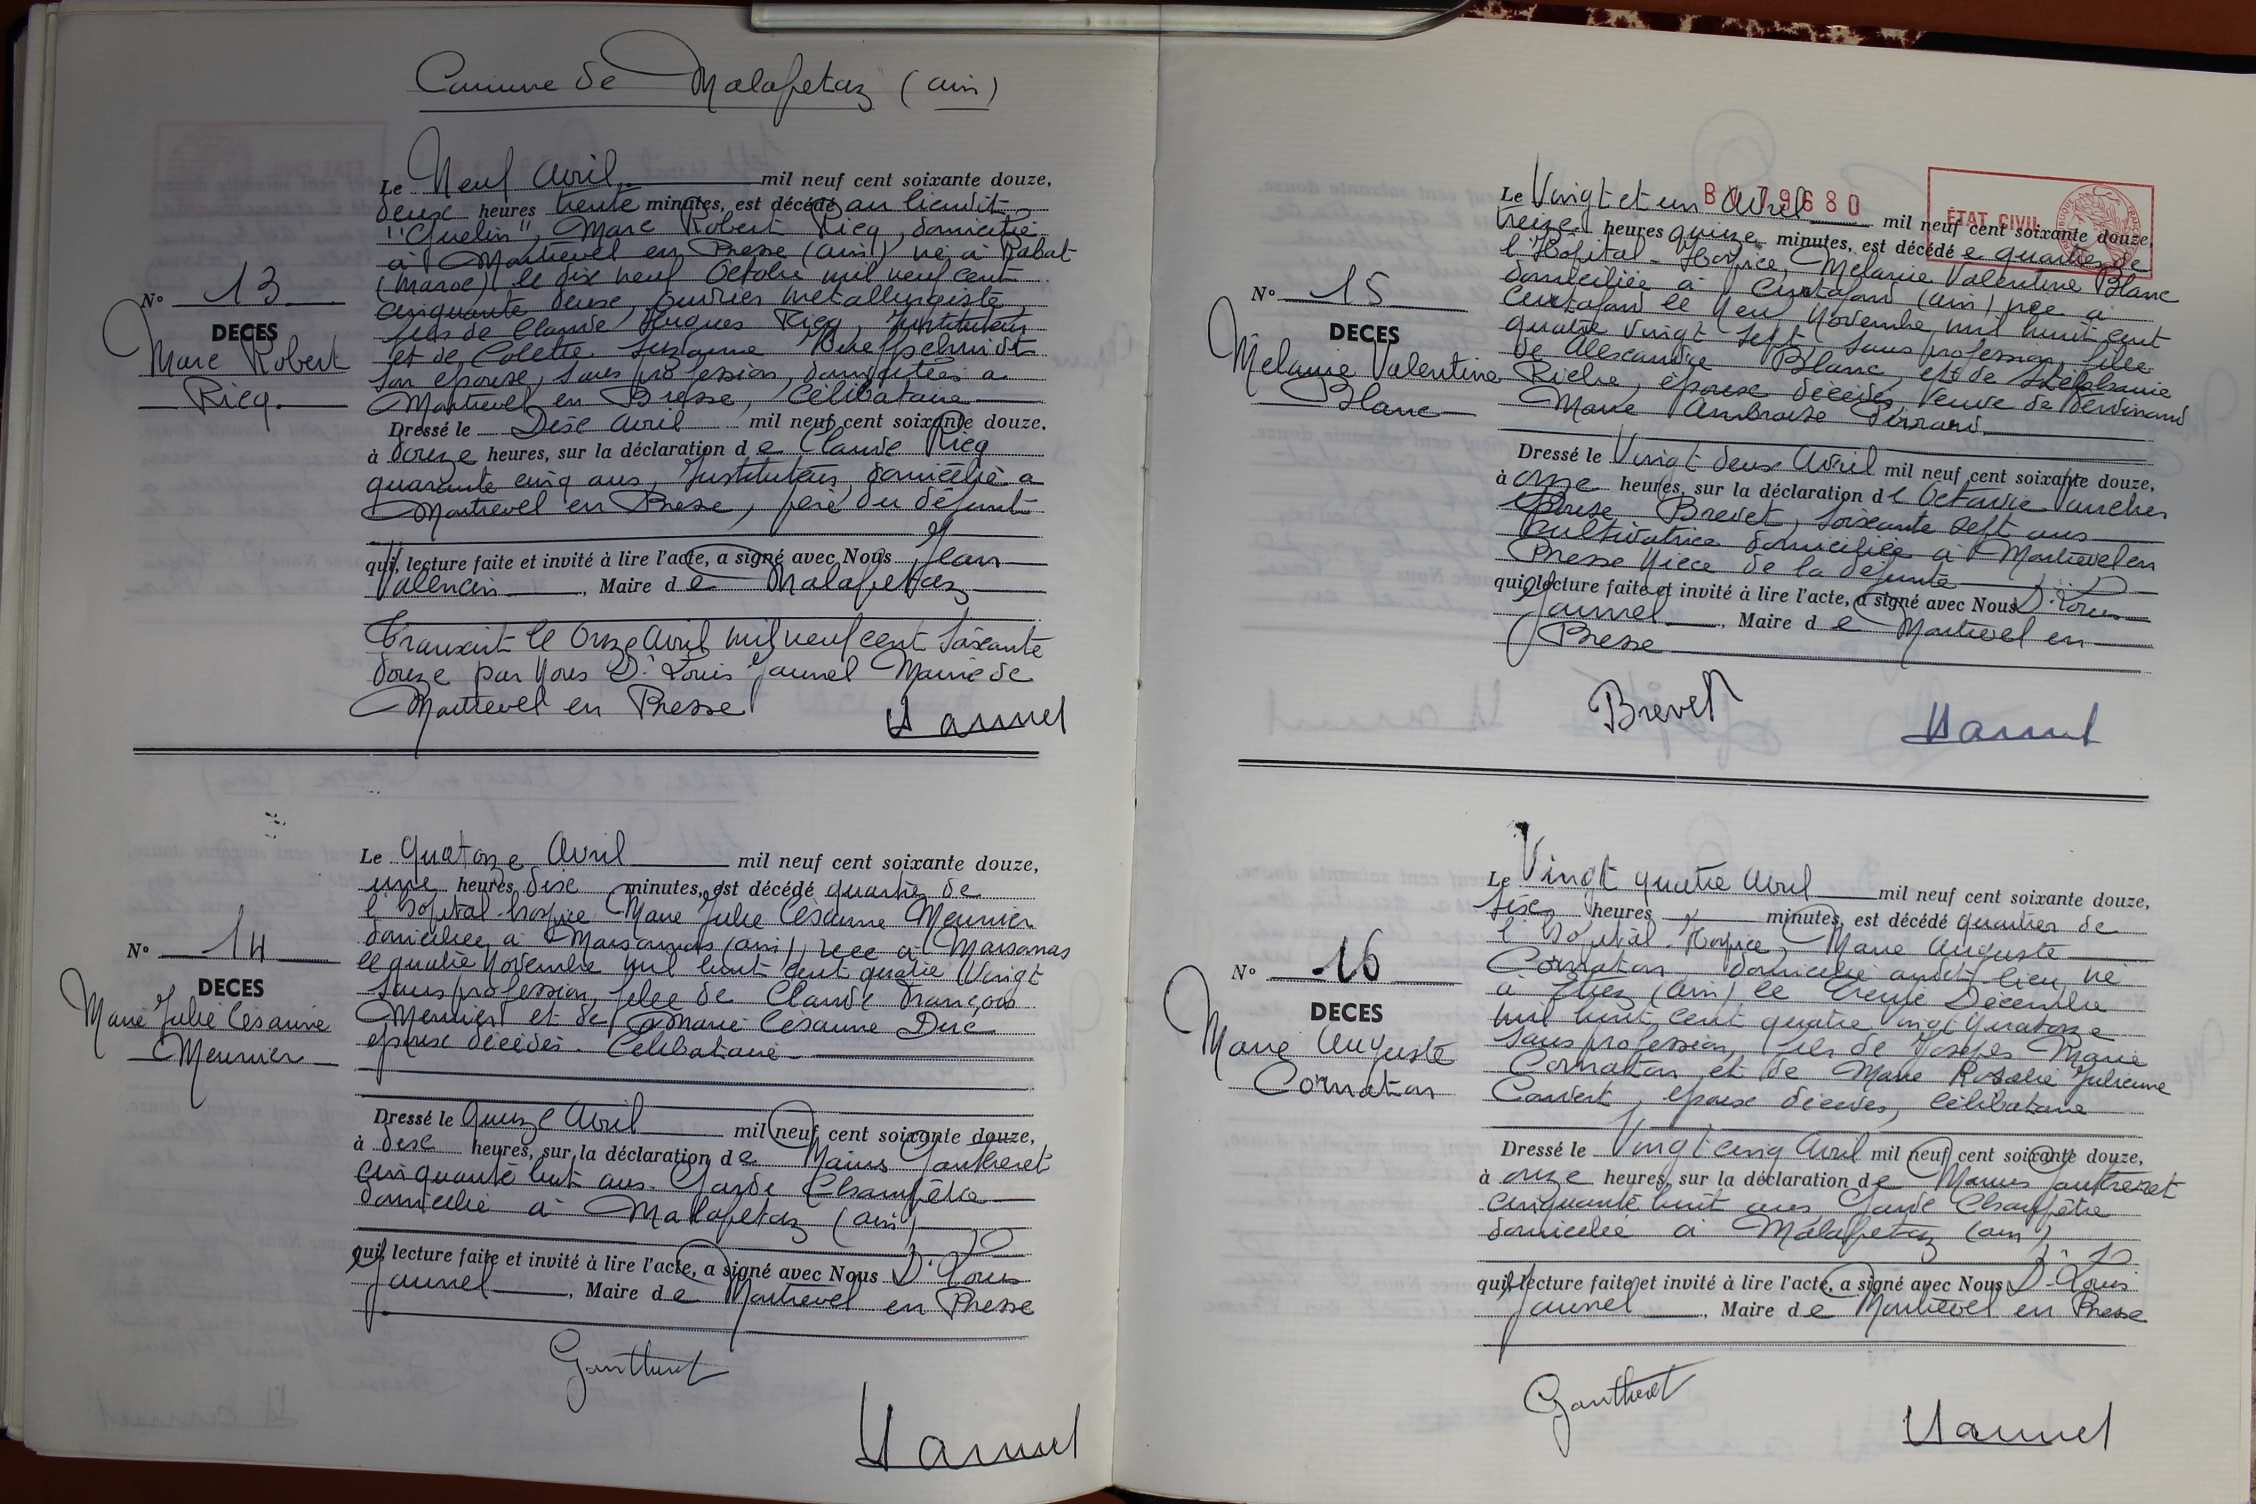 Commune de Malafretaz (ain)
Le Neuf Avril mil neuf cent soixante douze,
deux heures trente minutes, est décédé au lieudit
"Guelin", Marc Robert Ricq, domicilié
à Montrevel en Bresse (ain) né à Rabat
(Maroc) le dix neuf Octobre mil neuf cent
cinquante deux, ouvrier métallurgiste
fils de Claude Hugues Ricq, Instituteur
et de Colette Suzanne
son épouse, sans profession, domiciliés à
Montrevel en Bresse, Célibataire
N° 13
DECES
Marc Robert
Ricq
Dressé le Dix avril mil neuf cent soixante douze.
à douze heures, sur la déclaration de Claude Ricq
quarante cinq ans, Instituteur, domicilié à
Montrevel en Bresse, père du défunt
qui, lecture faite et invité à lire l'acte, a signé avec Nous Jean
Valencin, Maire de Malafretaz
Transcrit le Onze Avril mil neuf cent soixante
douze par Nous Dr Louis Jaunel Maire de
Montrevel en Bresse
Le Quatorze Avril mil neuf cent soixante douze,
une heures dix minutes, est décédé quartier de
l'hôpital-hospice Marie Julie Césarine Meunier
domiciliée à Marsonnas (ain), née à Marsonnas
le quatre Novembre mil huit cent quatre Vingt
sans profession, fille de Claude François
Meunier et de Marie Césarine Duc
époux décédés. Célibataire
N° 14
DECES
Marie Julie Césarine
Meunier
Dressé le Quinze Avril mil neuf cent soixante douze,
à dix heures, sur la déclaration de Marius Gautheret
cinquante huit ans. Garde Champêtre
domicilié à Malafretaz (ain)
qui, lecture faite et invité à lire l'acte, a signé avec Nous Dr Louis
Jaunel, Maire de Montrevel en Bresse
Gautheret
Jaunel
BV 79680
ÉTAT CIVIL
Le Vingt et un Avril mil neuf cent soixante douze,
treize heures quinze minutes, est décédé quartier de
l'Hopital-Hospice, Mélanie Valentine Blanc
domiciliée à Curtafond (ain) née à
Curtafond le Neuf Novembre mil huit cent
quatre vingt sept, sans profession, fille
de Alexandre Blanc et de Stéphanie
Riche, époux décédés, Veuve de Ferdinand
Marie Ambroise Perrard
N° 15
DECES
Mélanie Valentine
Blanc
Dressé le Vingt deux Avril mil neuf cent soixante douze,
à onze heures, sur la déclaration de Octavie
épouse Brevet, soixante sept ans
cultivatrice domiciliée à Montrevel en
Bresse Nièce de la défunte
qui, lecture faite et invité à lire l'acte, a signé avec Nous Dr Louis
Jaunel, Maire de Montrevel en
Bresse
Brevet
Jaunel
Le Vingt quatre Avril mil neuf cent soixante douze,
six heures minutes, est décédé quartier de
l'hôpital-Hospice, Marie Auguste
Cornaton, domicilié audit lieu, né
à (ain) le trente Décembre
mil huit cent quatre vingt quatorze
sans profession, fils de Joseph Marie
Cornaton et de Marie Rosalie Julienne
Convert, époux décédés, célibataire
N° 16
DECES
Marie Auguste
Cornaton
Dressé le Vingt cinq Avril mil neuf cent soixante douze,
à onze heures, sur la déclaration de Marius Gautheret
cinquante huit ans Garde Champêtre
domicilié à Malafretaz (ain)
qui, lecture faite et invité à lire l'acte, a signé avec Nous Dr Louis
Jaunel, Maire de Montrevel en Bresse
Gautheret
Jaunel